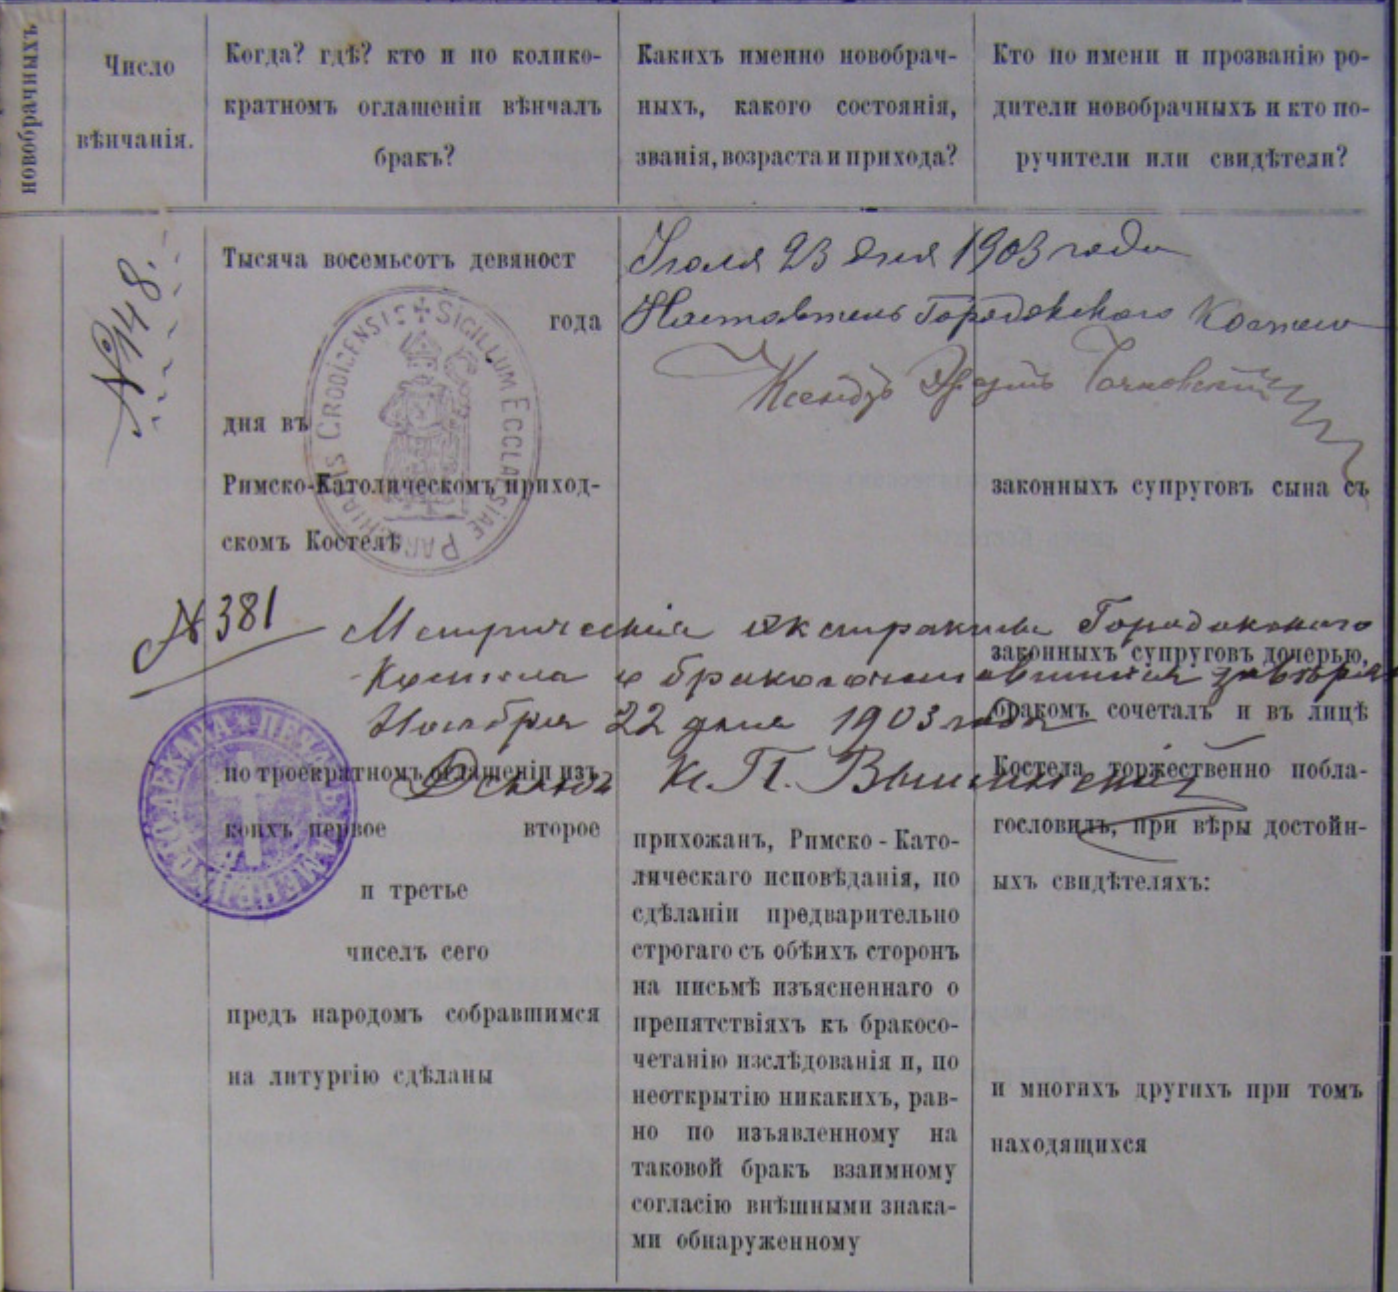 новобрачныхъ
Число
вѣнчанія.
Когда? гдѣ? кто и по колико-
кратномъ оглашеніи вѣнчалъ
бракъ?
Какихъ именно новобрач-
ныхъ, какого состоянія,
званія, возраста и прихода?
Кто по имени и прозванію ро-
дители новобрачныхъ и кто по-
ручители или свидѣтели?
№148.
Тысяча восемьсотъ девяност
года
дня въ
Римско-Католическомъ приход-
скомъ Костелѣ
SIGILLUM ECCLAESIAE PAROCHIALIS GRODIZENSIS
Іюля 23 дня 1903 года
Настоятель Городокскаго
Ксендзъ
законныхъ супруговъ сына съ
№ 381
Метрическія экстракты Городокскаго
Костела о бракосочетавшихся
Ноября 22 дня 1903 года
Деканъ К. П.
законныхъ супруговъ дочерью,
бракомъ сочеталъ и въ лицѣ
Костела торжественно побла-
гословилъ, при вѣры достойн-
ыхъ свидѣтеляхъ:
по троекратномъ оглашеніи изъ
коихъ первое второе
и третье
чиселъ сего
предъ народомъ собравшимся
на литургію сдѣланы
прихожанъ, Римско-Като-
лическаго исповѣданія, по
сдѣланіи предварительно
строгаго съ обѣихъ сторонъ
на письмѣ изъясненнаго о
препятствіяхъ къ бракосо-
четанію изслѣдованія и, по
неоткрытію никакихъ, рав-
но по изъявленному на
таковой бракъ взаимному
согласію внѣшными знака-
ми обнаруженному
и многихъ другихъ при томъ
находящихся